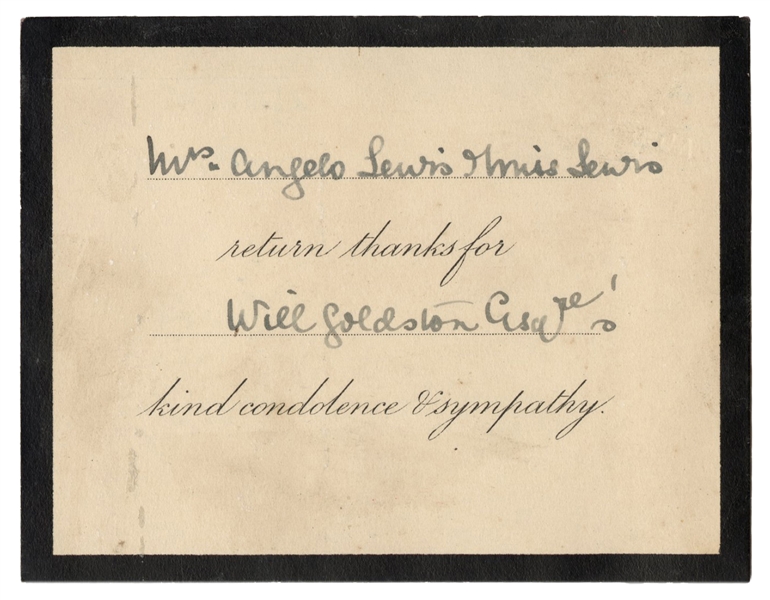 Mrs. Angelo Lewis & Miss Lewis
return thanks for
Will Goldston Esqre's
kind condolence & sympathy.